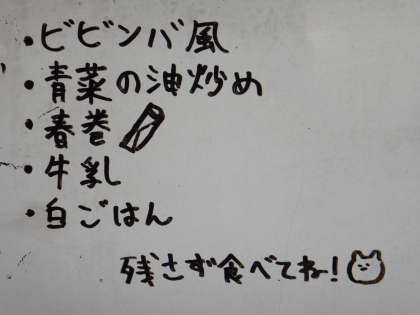 ・ビビンバ風
・青菜の油炒め
・春巻
・牛乳
・白ごはん
残さず食べてね!